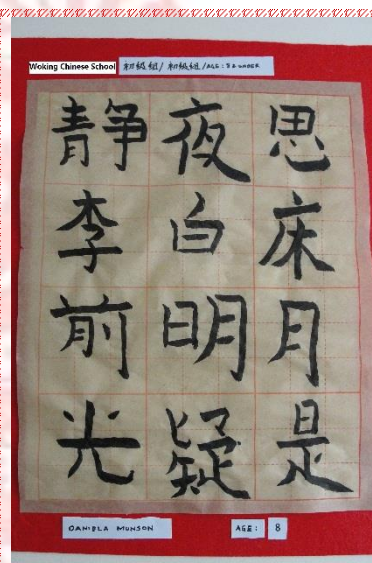 Woking Chinese School
初級組/ 初级组/AGE: 8 & UNDER
静夜思
李白床
前明月
光疑是
DANIELA MUNSON
AGE: 8